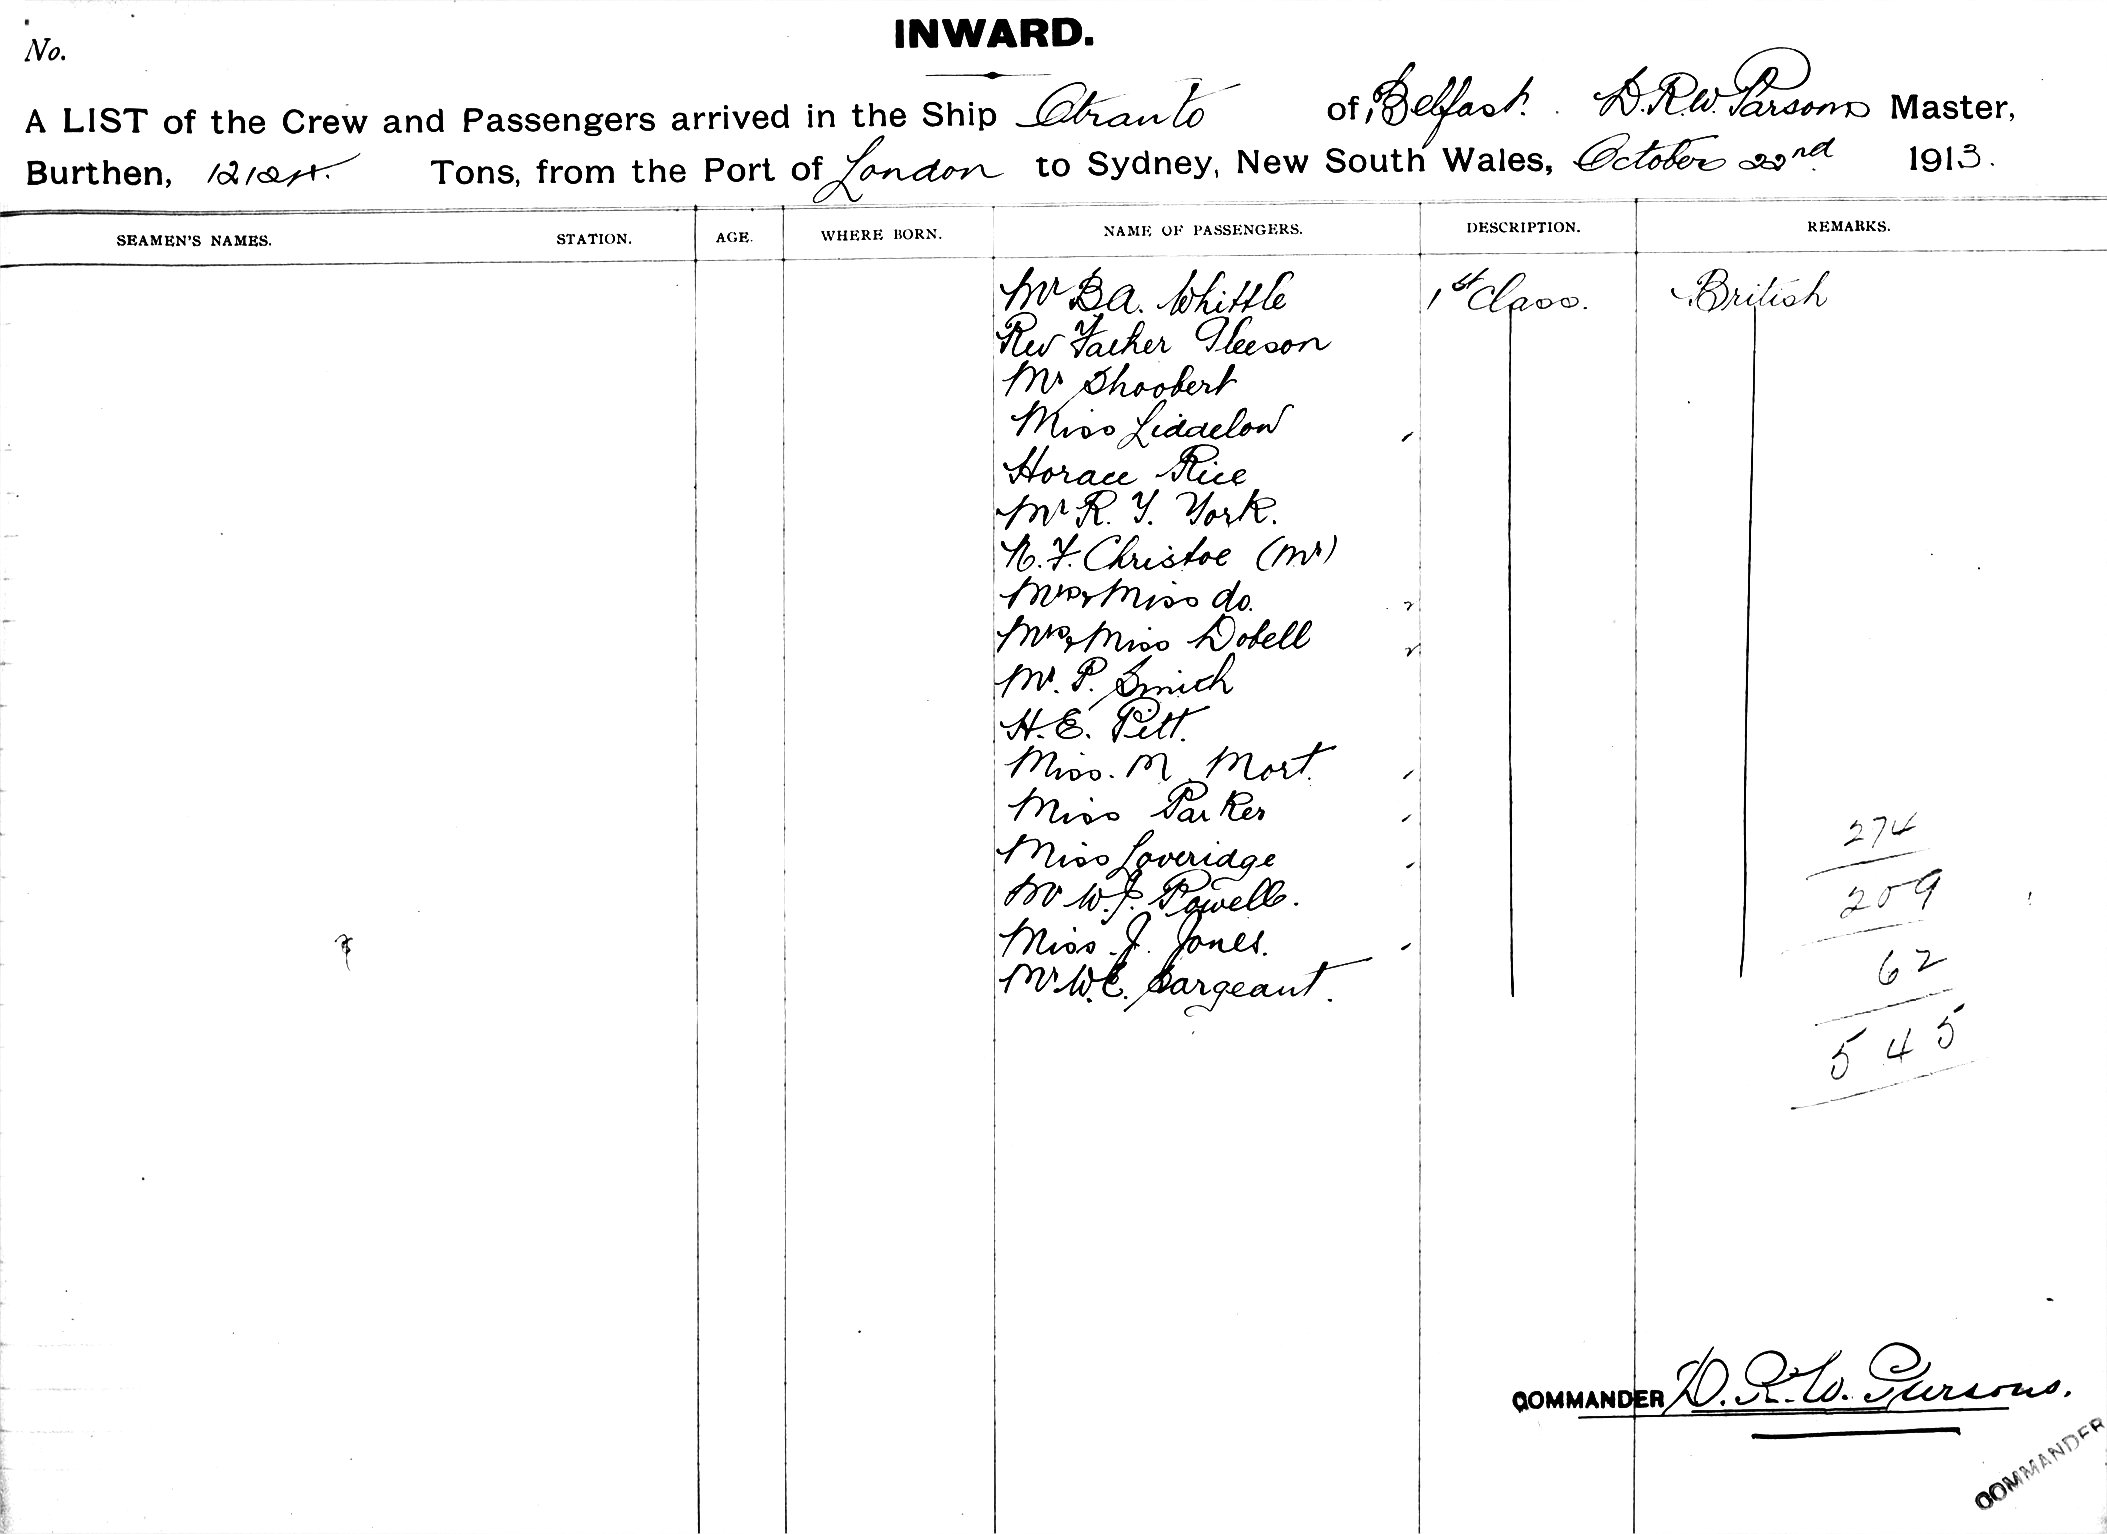 INWARD.
No.
A LIST of the Crew and Passengers arrived in the Ship Otranto of Belfast. D. R. W. Parsons Master,
Burthen, 12124 Tons, from the Port of London to Sydney, New South Wales, October 22nd 1913.
SEAMEN'S NAMES. STATION. AGE. WHERE BORN. NAME OF PASSENGERS. DESCRIPTION. REMARKS.
Mr B A. Whittle 1st Class. British
Rev Father Gleeson
Mr Shoobert
Miss Liddelow
Horace Rice
Mr R. Y. York.
N. F. Christoe (Mr)
Mrs & Miss do.
Mrs & Miss Dobell
Mr. P. Smith
H. E. Pitt.
Miss. M. Mort.
Miss Parker
274
Miss Loveridge
Mr W. J. Powell.
209
Miss. J. Jones.
Mr. W. E. Sargeant.
62
545
COMMANDER D. R. W. Parsons.
COMMANDER